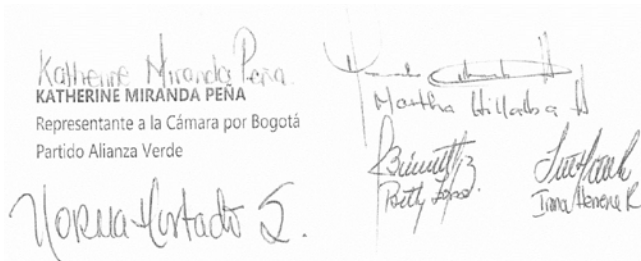 Katherine Miranda Peña.
KATHERINE MIRANDA PEÑA
Representante a la Cámara por Bogotá
Partido Alianza Verde
Norma Hurtado S.
Martha Villalba H
Betty Zorro.
Irma Herrera R